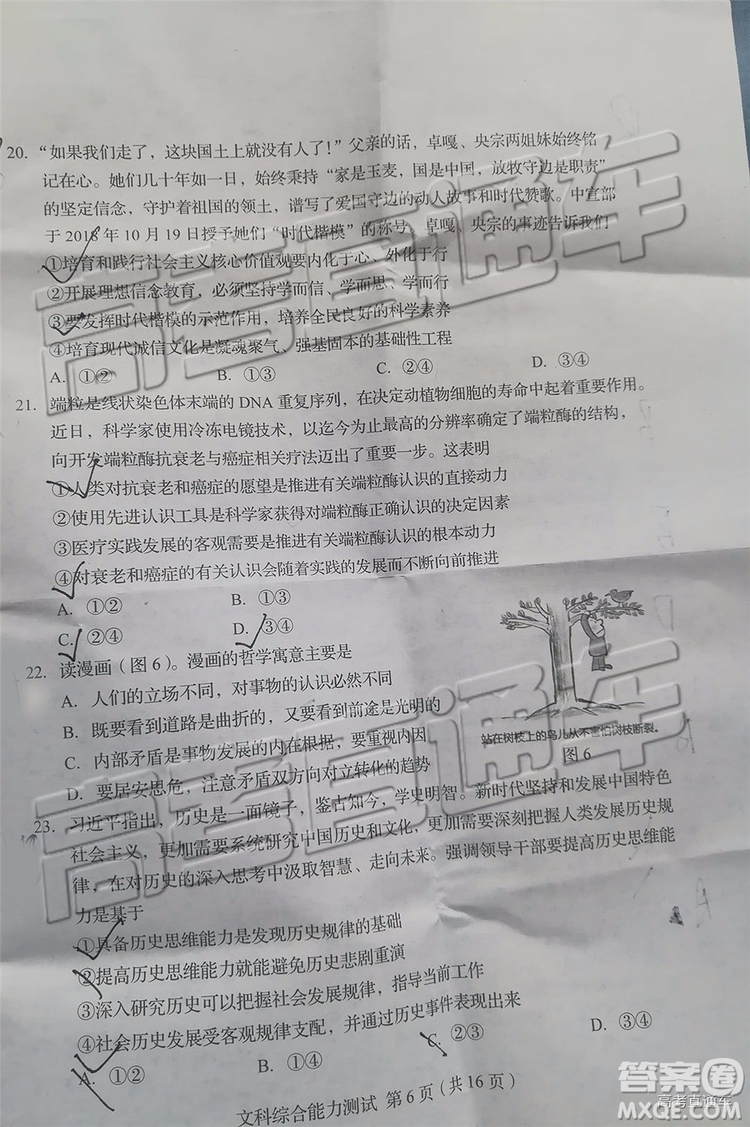 20. “如果我们走了，这块国土上就没有人了！”父亲的话，卓嘎、央宗两姐妹始终铭
记在心。她们几十年如一日，始终秉持“家是玉麦，国是中国，放牧守边是职责”
的坚定信念，守护着祖国的领土，谱写了爱国守边的动人故事和时代赞歌。中宣部
于 2018 年 10 月 19 日授予她们“时代楷模”的称号。卓嘎、央宗的事迹告诉我们
①培育和践行社会主义核心价值观要内化于心、外化于行
②开展理想信念教育，必须坚持学而信、学而思、学而行
③要发挥时代楷模的示范作用，培养全民良好的科学素养
④培育现代诚信文化是凝魂聚气、强基固本的基础性工程
A. ①② B. ①③ C. ②④ D. ③④
21. 端粒是线状染色体末端的 DNA 重复序列，在决定动植物细胞的寿命中起着重要作用。
近日，科学家使用冷冻电镜技术，以迄今为止最高的分辨率确定了端粒酶的结构，
向开发端粒酶抗衰老与癌症相关疗法迈出了重要一步。这表明
①人类对抗衰老和癌症的愿望是推进有关端粒酶认识的目的
②使用先进认识工具是科学家获得对端粒酶正确认识的关键
③医疗实践发展的客观需要是推进有关端粒酶认识的根本动力
④对衰老和癌症的有关认识会随着实践的发展而不断向前推进
A. ①② B. ①③
C. ②④ D. ③④
22. 读漫画（图 6）。漫画的哲学寓意主要是
A. 人们的立场不同，对事物的认识必然不同
B. 既要看到道路是曲折的，又要看到前途是光明的
C. 内部矛盾是事物发展的内在根据，要重视内因
D. 要居安思危，注意矛盾双方对立转化的趋势
站在树枝上的鸟儿从不害怕树枝断裂。
图 6
23. 习近平指出，历史是一面镜子，鉴古知今，学史明智。新时代坚持和发展中国特色
社会主义，更加需要系统研究中国历史和文化，更加需要深刻把握人类发展历史规
律，在对历史的深入思考中汲取智慧、走向未来。强调领导干部要提高历史思维能
力是基于
①具备历史思维能力是发现历史规律的基础
②提高历史思维能力就能避免历史悲剧重演
③深入研究历史可以把握社会发展规律，指导当前工作
④社会历史发展受客观规律支配，并通过历史事件表现出来
A. ①② B. ①④ C. ②③ D. ③④
文科综合能力测试 第 6 页（共 16 页）
高考直通车
高考直通车
答案圈
高考直通车
MXQE.COM